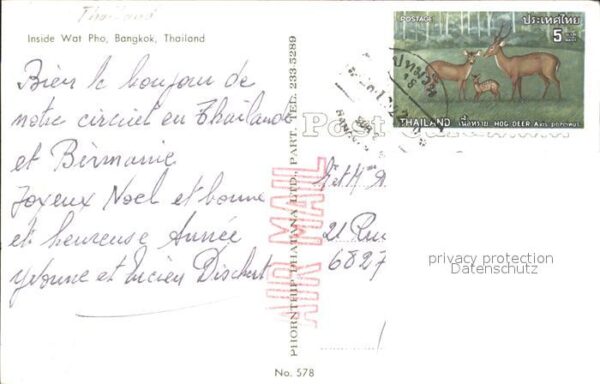 Thailand
Inside Wat Pho, Bangkok, Thailand
Bien le bonjour de
notre circuit en Thailand
et Birmanie
Joyeux Noel et bonne
et heureuse Année
Yvonne et Lucien Dischert
PHORNTHIP PHATANA LTD., PART. TEL. 233-5289
Post
AIR MAIL
POSTAGE
ประเทศไทย
5
THAILAND
เนื้อทราย HOG-DEER Axis porcinus
18
Mr et Mme A
21 Rue
6827
privacy protection
Datenschutz
No. 578